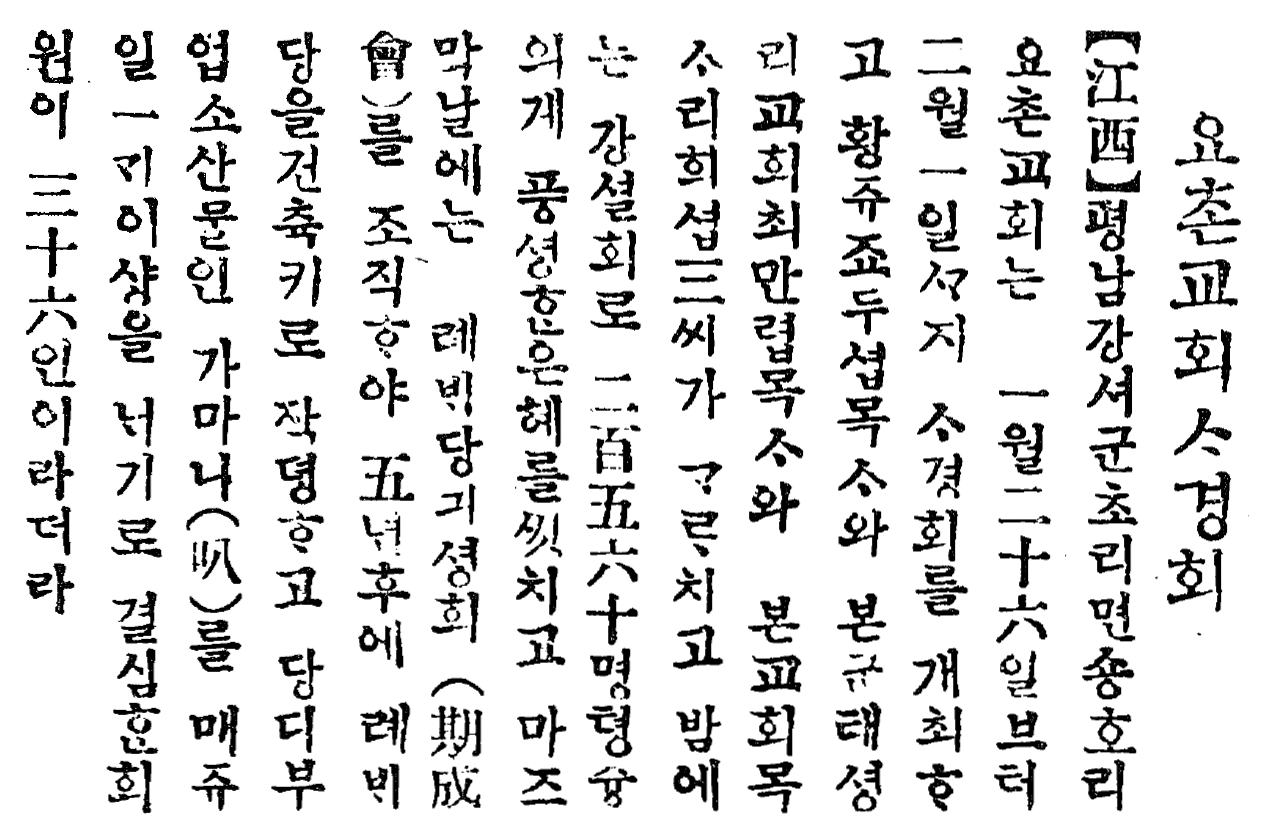 요촌교회ᄉᆞ경회
【江西】평남강셔군초리면숑호리
요촌교회는 一월二十六일브터
二월一일ᄭᆞ지 ᄉᆞ경회를 개최ᄒᆞ
고 황쥬죠두셥목ᄉᆞ와 본군태셩
리교회최만렵목ᄉᆞ와 본교회목
ᄉᆞ리희셥三씨가 ᄀᆞᄅᆞ치고 밤에
는 강셜회로 二百五六十명텽즁
의게 풍셩ᄒᆞᆫ은혜를ᄭᅵᆺ치고 마즈
막날에는 례ᄇᆡ당긔셩회 (期成
會)를 조직ᄒᆞ야 五년후에 례ᄇᆡ
당을건축키로 작뎡ᄒᆞ고 당디부
업소산물인 가마니(叺)를 매쥬
일一ᄀᆡ이샹을 ᄂᆡ기로 결심ᄒᆞᆫ회
원이 三十六인이라더라